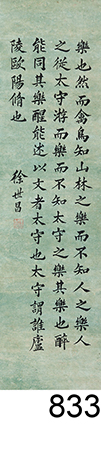 樂也然而禽鳥知山林之樂而不知人之樂人
之從太守游而樂而不知太守之樂其樂也醉
能同其樂醒能述以文者太守也太守謂誰廬
陵歐陽脩也
徐世昌
833